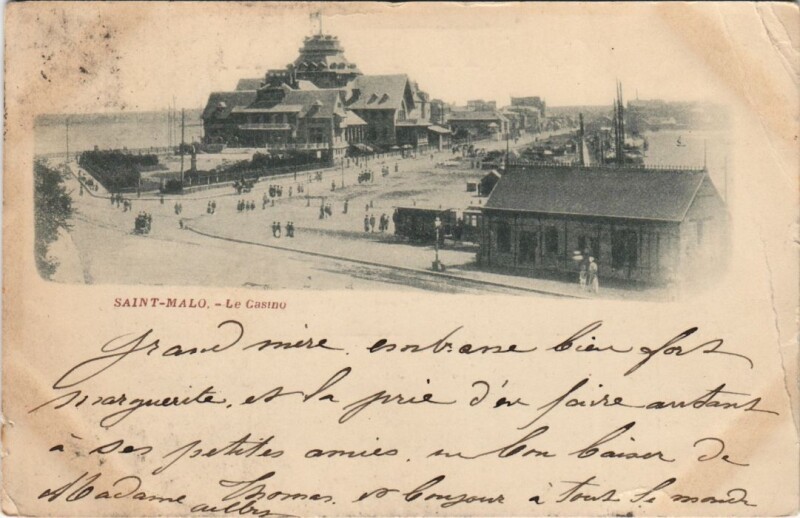 SAINT-MALO. - Le Casino
Grand mère embrasse bien fort
marguerite, et la prie d'en faire autant
à ses petites amies, un bon baiser de
Madame Thomas, et bonjour à tout le monde